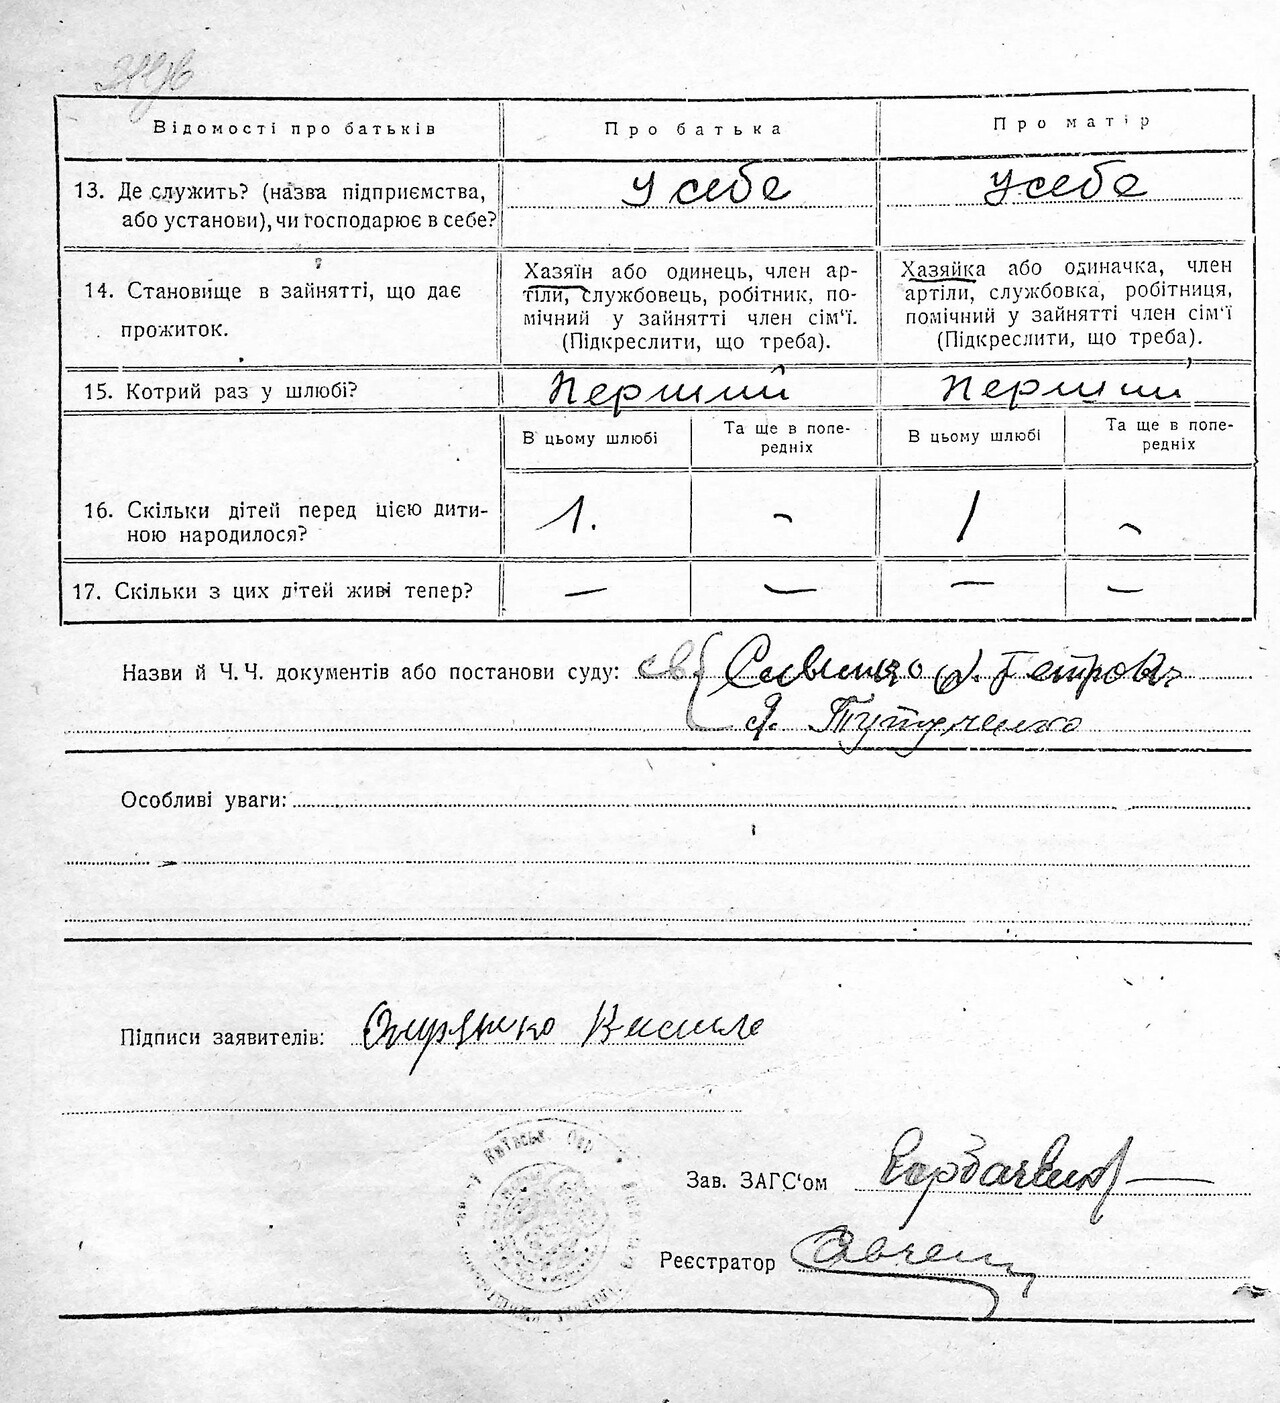 Відомості про батьків
Про батька
Про матір
13. Де служить? (назва підприємства, або установи), чи господарює в себе?
У себе
У себе
14. Становище в зайнятті, що дає прожиток.
Хазяїн або одинець, член ар-
тіли, службовець, робітник, по-
мічний у зайнятті член сім'ї.
(Підкреслити, що треба).
Хазяйка або одиначка, член
артіли, службовка, робітниця,
помічний у зайнятті член сім'ї
(Підкреслити, що треба).
15. Котрий раз у шлюбі?
Перший
Перший
В цьому шлюбі
Та ще в попе-
редніх
В цьому шлюбі
Та ще в попе-
редніх
16. Скільки дітей перед цією дити-
ною народилося?
1. - 1 -
17. Скільки з цих дітей живі тепер?
— — — —
Назви й Ч. Ч. документів або постанови суду: св.
Особливі уваги:
Підписи заявителів:
Зав. ЗАГС'ом
Реєстратор